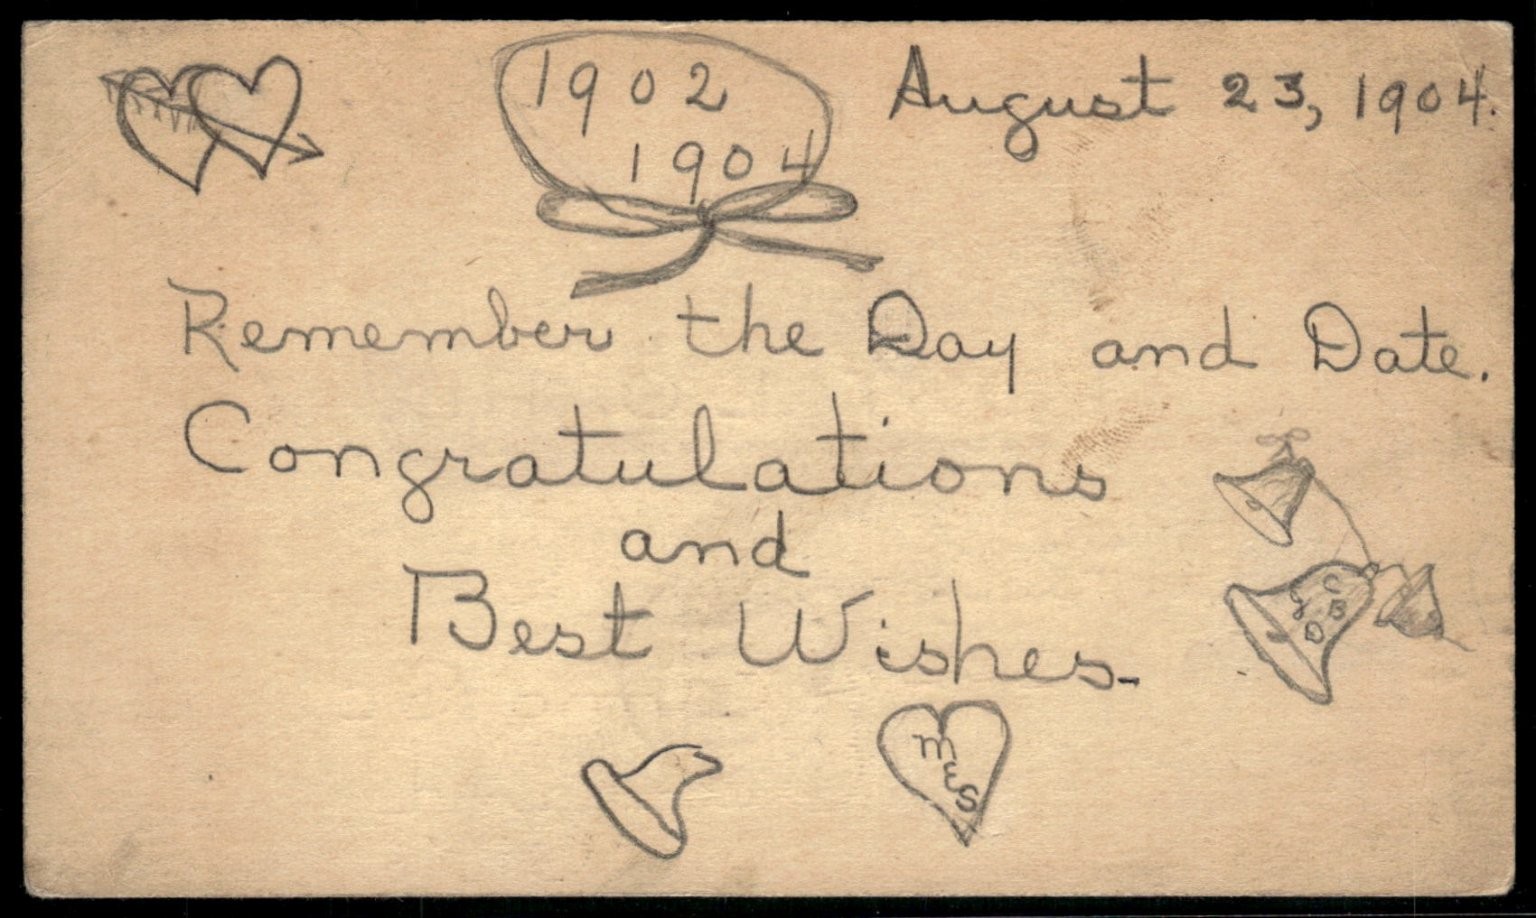 1902
1904
August 23, 1904.
Remember the Day and Date.
Congratulations
and
Best Wishes.
C
J B
D
M
W
S